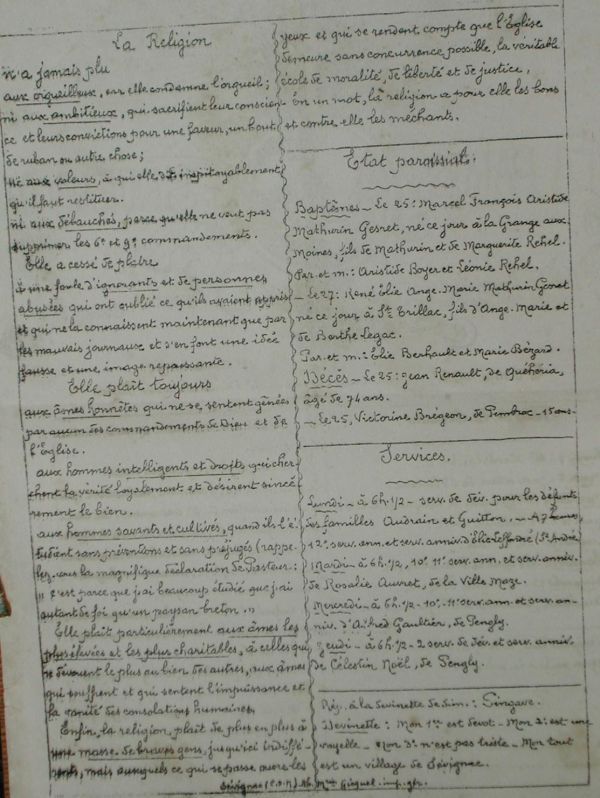 La Religion
n'a jamais plu
aux orgueilleux, car elle condamne l'orgueil;
ni aux ambitieux, qui sacrifient leur conscien-
ce et leurs convictions pour une faveur, un bout
de ruban ou autre chose;
ni aux voleurs, à qui elle dit impitoyablement
qu'il faut restituer.
ni aux débauchés, parce qu'elle ne veut pas
supprimer les 6e et 9e commandements.
Elle a cessé de plaire
à une foule d'ignorants et de personnes
abusées qui ont oublié ce qu'ils avaient appris
et qui ne la connaissent maintenant que par
les mauvais journaux et s'en font une idée
fausse et une image repoussante.
Elle plaît toujours
aux âmes honnêtes qui ne se sentent gênées
par aucun des commandements de Dieu et de
l'Église.
aux hommes intelligents et droits qui cher-
chent la vérité loyalement et désirent sincè-
rement le bien.
aux hommes savants et cultivés, quand ils l'é-
tudient sans préventions et sans préjugés (rappe-
lez-vous la magnifique déclaration de Pasteur:
"C'est parce que j'ai beaucoup étudié que j'ai
autant de foi qu'un paysan breton."
Elle plaît particulièrement aux âmes les
plus élevées et les plus charitables, à celles qui
se dévouent le plus au bien des autres, aux âmes
qui souffrent et qui sentent l'impuissance et
la vanité des consolations humaines.
Enfin, la religion plaît de plus en plus à
une masse de braves gens, jusqu'ici indiffé-
rents, mais auxquels ce qui se passe ouvre les
yeux et qui se rendent compte que l'Église
demeure sans concurrence possible, la véritable
école de moralité, de liberté et de justice,
En un mot, la religion a pour elle les bons
et contre elle les méchants.
Etat paroissial.
Baptêmes - Le 25: Marcel François Aristide
Mathurin Gesret, né ce jour à la Grange aux
Moines, fils de Mathurin et de Marguerite Rehel.
Par. et m.: Aristide Boyer et Léonie Rehel.
- Le 27: René Élie Ange-Marie Mathurin Genet
né ce jour à St Brillac, fils d'Ange-Marie et
de Berthe Legac.
Par. et m.: Élie Berhault et Marie Bézard.
Décès - Le 25: Jean Renault, de Quéhéria,
âgé de 74 ans.
- Le 25, Victorine Brégeon, de Pembroc - 15 ans-
Services.
Lundi - à 6h.1/2 - serv. de dév. pour les défunts
des familles Audrain et Guitton, - A 7 heures,
12e serv. ann. et serv. anniv. d'Élie (St André)
Mardi - à 6h.1/2, 10e 11e serv. ann. et serv. anniv.
de Rosalie Auvret, de la Ville Moze.
Mercredi - à 6h.1/2 - 10e - 11e serv. ann. et serv. an-
niv. d'Alfred Gaultier, de Pengly.
Jeudi - à 6h.1/2 - 2 serv. de dév. et serv. anniv.
de Célestin Noël, de Pengly.
Rép. à la devinette de dim.: Singave.
Devinette: Mon 1er est devot - Mon 2e est une
voyelle - Mon 3e n'est pas triste - Mon tout
est un village de Sévignac.
Sévignac (C.d.N) Ab. Mce Gicquel - imp. gér.